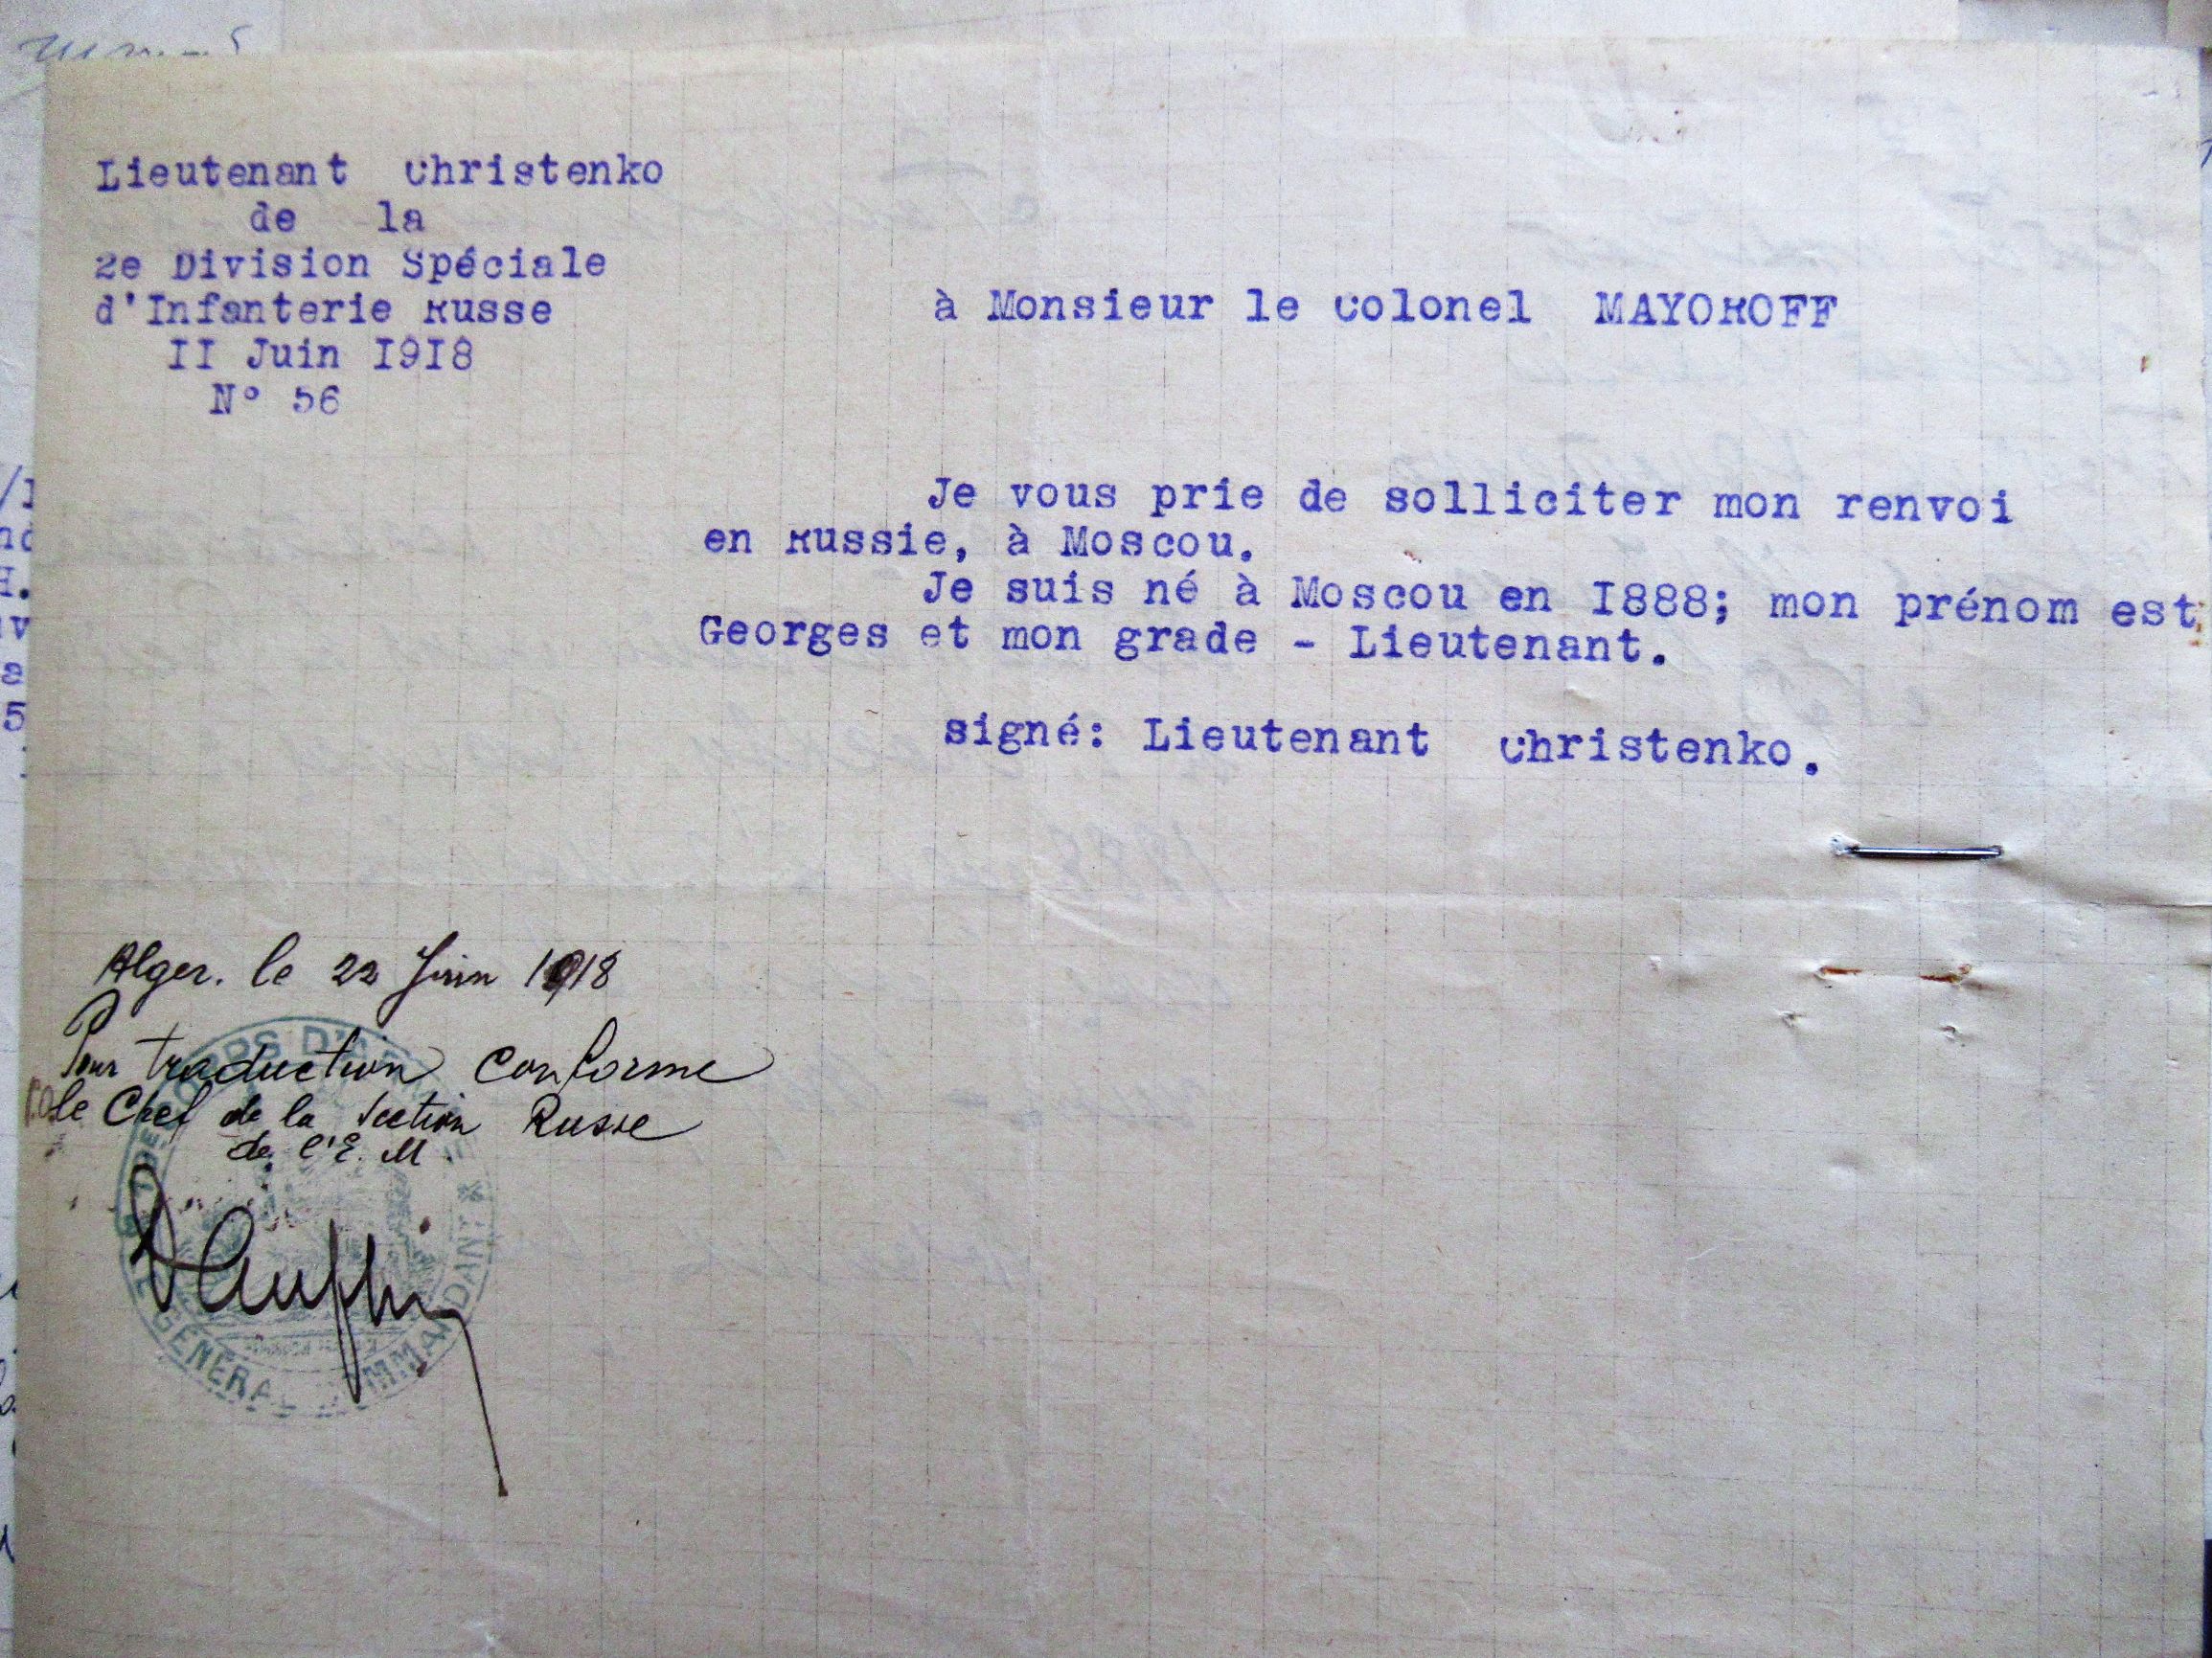 Lieutenant Christenko
de la
2e Division Spéciale
d'Infanterie Russe
II Juin I9I8
N° 56
à Monsieur le Colonel MAYOROFF
Je vous prie de solliciter mon renvoi
en Russie, à Moscou.
Je suis né à Moscou en I888; mon prénom est
Georges et mon grade - Lieutenant.
signé: Lieutenant Christenko.
Alger. le 22 Juin 1918
Pour traduction conforme
le Chef de la Section Russe
de l'E. M.
CORPS D'AR
GENERAL
MMANDANT